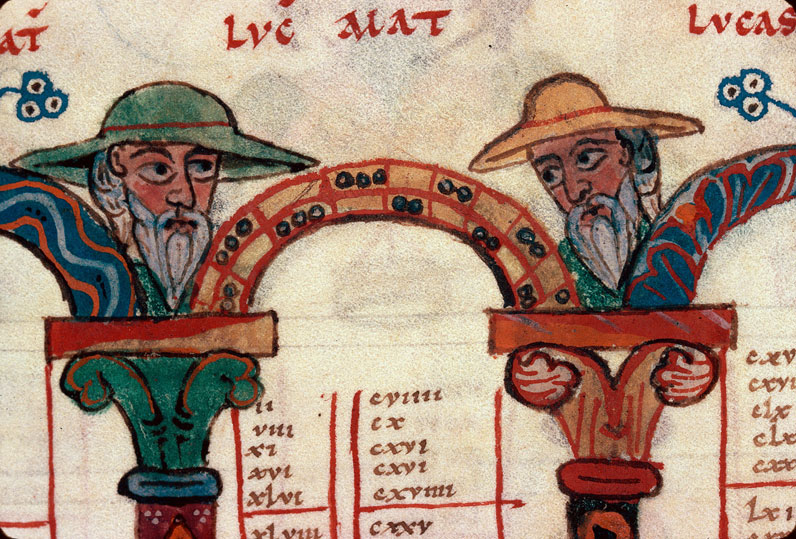 AT LUC MAT LUCAS
ii
viii
xi
xvi
xlvi
xlviii
cviiii
cx
cxvi
cxvi
cxviiii
cxxv
cxvi
clx
lxi